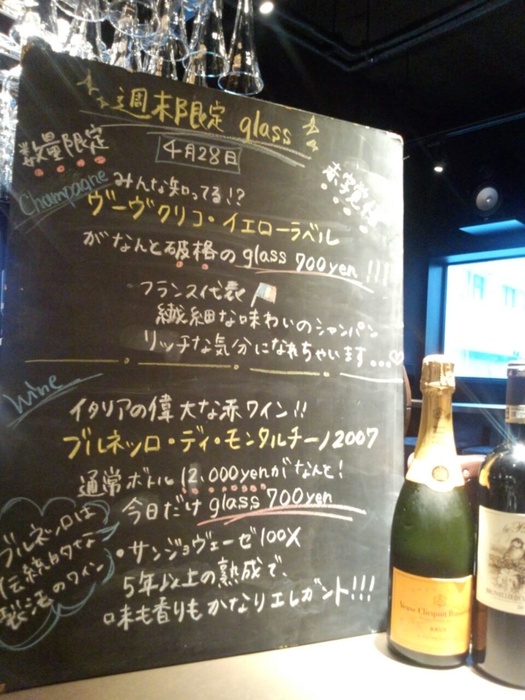 週末限定 glass
数量限定
4月28日
赤字覚悟
Champagne
みんな知ってる!?
ヴーヴクリコ・イエローラベル
がなんと破格のglass 700yen!!!
フランス代表
繊細な味わいのシャンパン
リッチな気分になれちゃいます...♡
Wine
イタリアの偉大な赤ワイン!!
ブルネッロ・ディ・モンタルチーノ2007
通常ボトル12,000yenがなんと!
今日だけglass 700yen
ブルネッロは
伝統的な
製法のワイン
・サンジョヴェーゼ100%
5年以上の熟成で、
味も香りもかなりエレガント!!!
Veuve Clicquot Ponsardin
BRUT